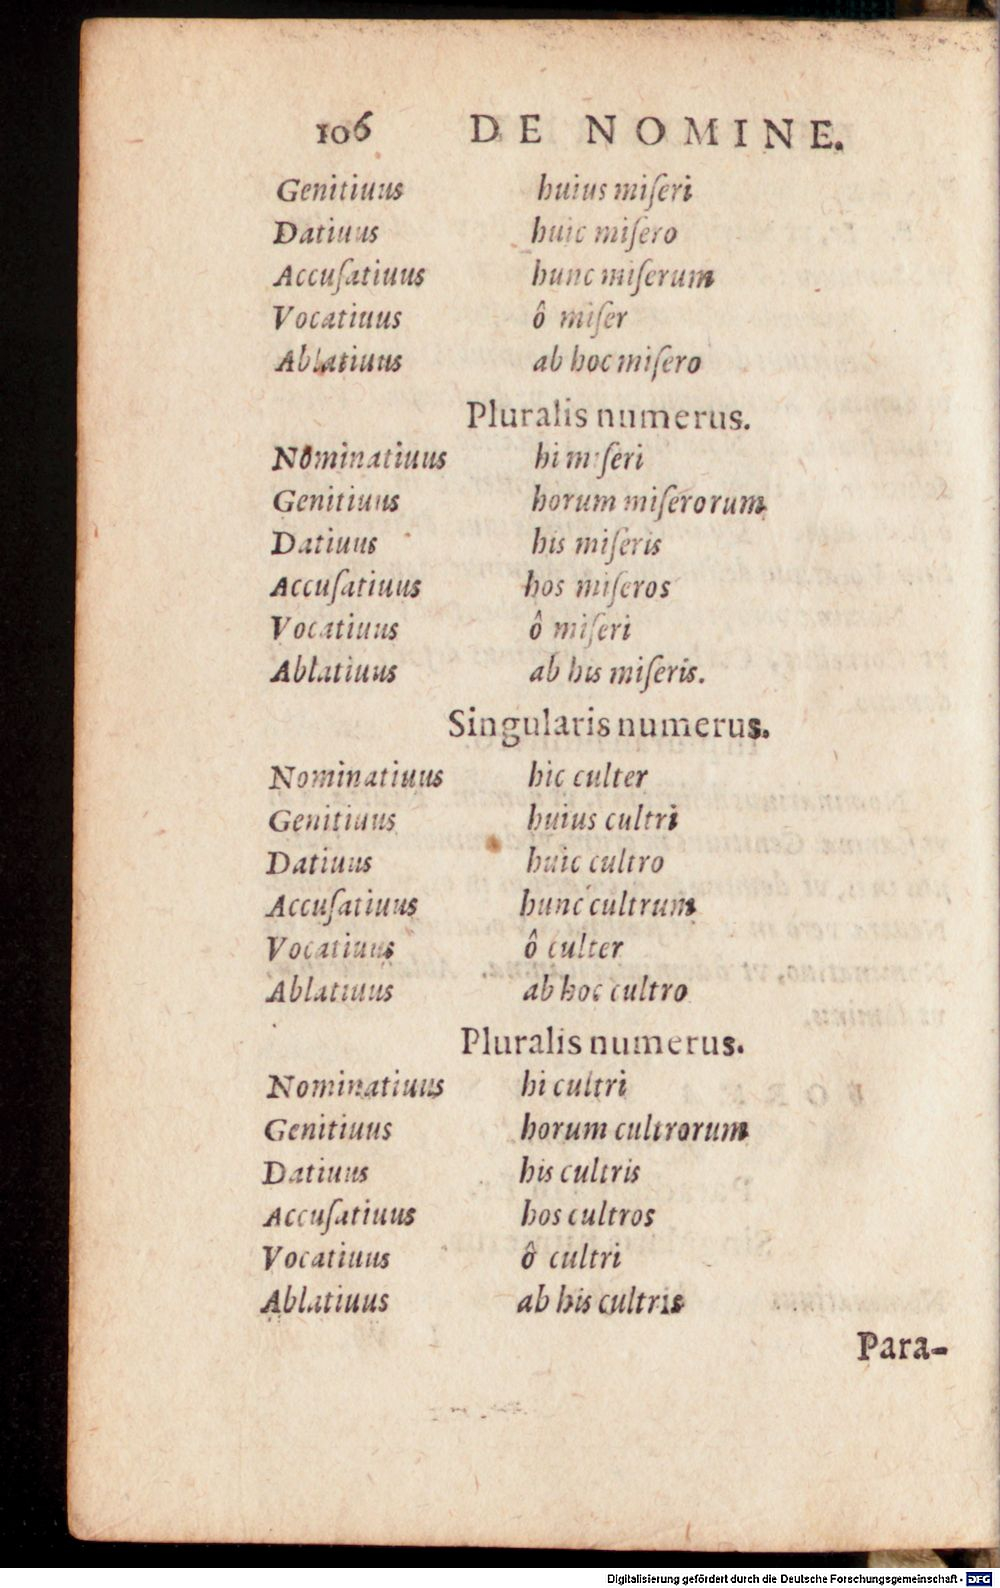 106 DE NOMINE.
Genitiuus huius miſeri
Datiuus huic miſero
Accuſatiuus hunc miſerum
Vocatiuus ô miſer
Ablatiuus ab hoc miſero
Pluralis numerus.
Nominatiuus hi miſeri
Genitiuus horum miſerorum
Datiuus his miſeris
Accuſatiuus hos miſeros
Vocatiuus ô miſeri
Ablatiuus ab his miſeris.
Singularis numerus.
Nominatiuus hic culter
Genitiuus huius cultri
Datiuus huic cultro
Accuſatiuus hunc cultrum
Vocatiuus ô culter
Ablatiuus ab hoc cultro
Pluralis numerus.
Nominatiuus hi cultri
Genitiuus horum cultrorum
Datiuus his cultris
Accuſatiuus hos cultros
Vocatiuus ô cultri
Ablatiuus ab his cultris
Para-
Digitalisierung gefördert durch die Deutsche Forschungsgemeinschaft - DFG